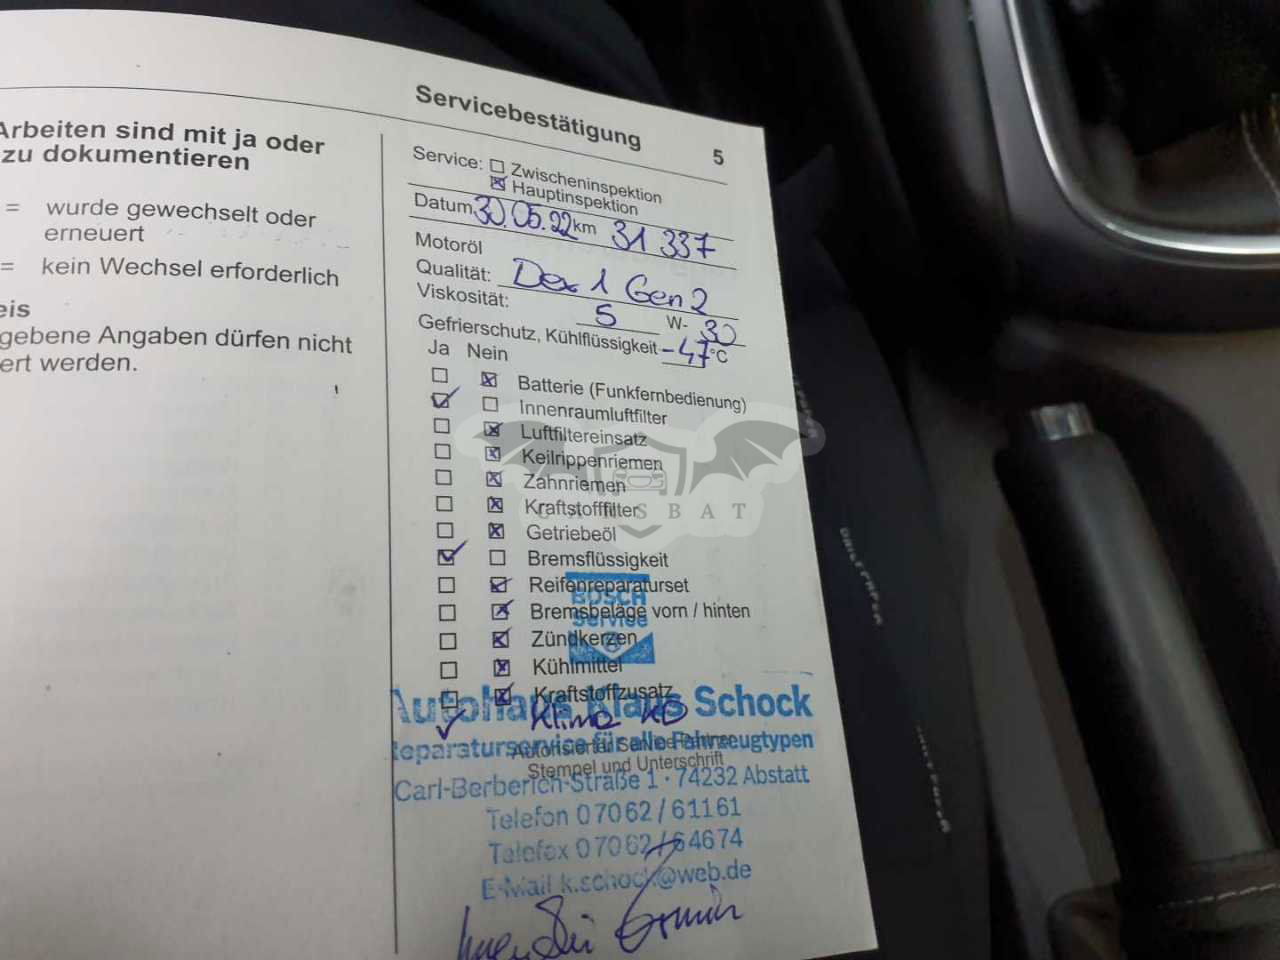 Arbeiten sind mit ja oder
zu dokumentieren
= wurde gewechselt oder
erneuert
= kein Wechsel erforderlich
eis
gebene Angaben dürfen nicht
ert werden.
Servicebestätigung 5
Service: Zwischeninspektion
Hauptinspektion
Datum 30.05.22 km 31 337
Motoröl
Qualität: Dex 1 Gen 2
Viskosität: 5 W- 30
Gefrierschutz, Kühlflüssigkeit -47 °C
Ja Nein
Batterie (Funkfernbedienung)
Innenraumluftfilter
Luftfiltereinsatz
Keilrippenriemen
Zahnriemen
Kraftstofffilter
Getriebeöl
Bremsflüssigkeit
Reifenreparaturset
Bremsbeläge vorn / hinten
Zündkerzen
Kühlmittel
Kraftstoffzusatz
Klima
BOSCH
Service
Autohaus Klaus Schock
Reparaturservice für alle Fahrzeugtypen
Autorisierter Service Partner
Stempel und Unterschrift
Carl-Berberich-Straße 1 · 74232 Abstatt
Telefon 07062 / 61161
Telefax 07062 / 64674
E-Mail k.schock@web.de